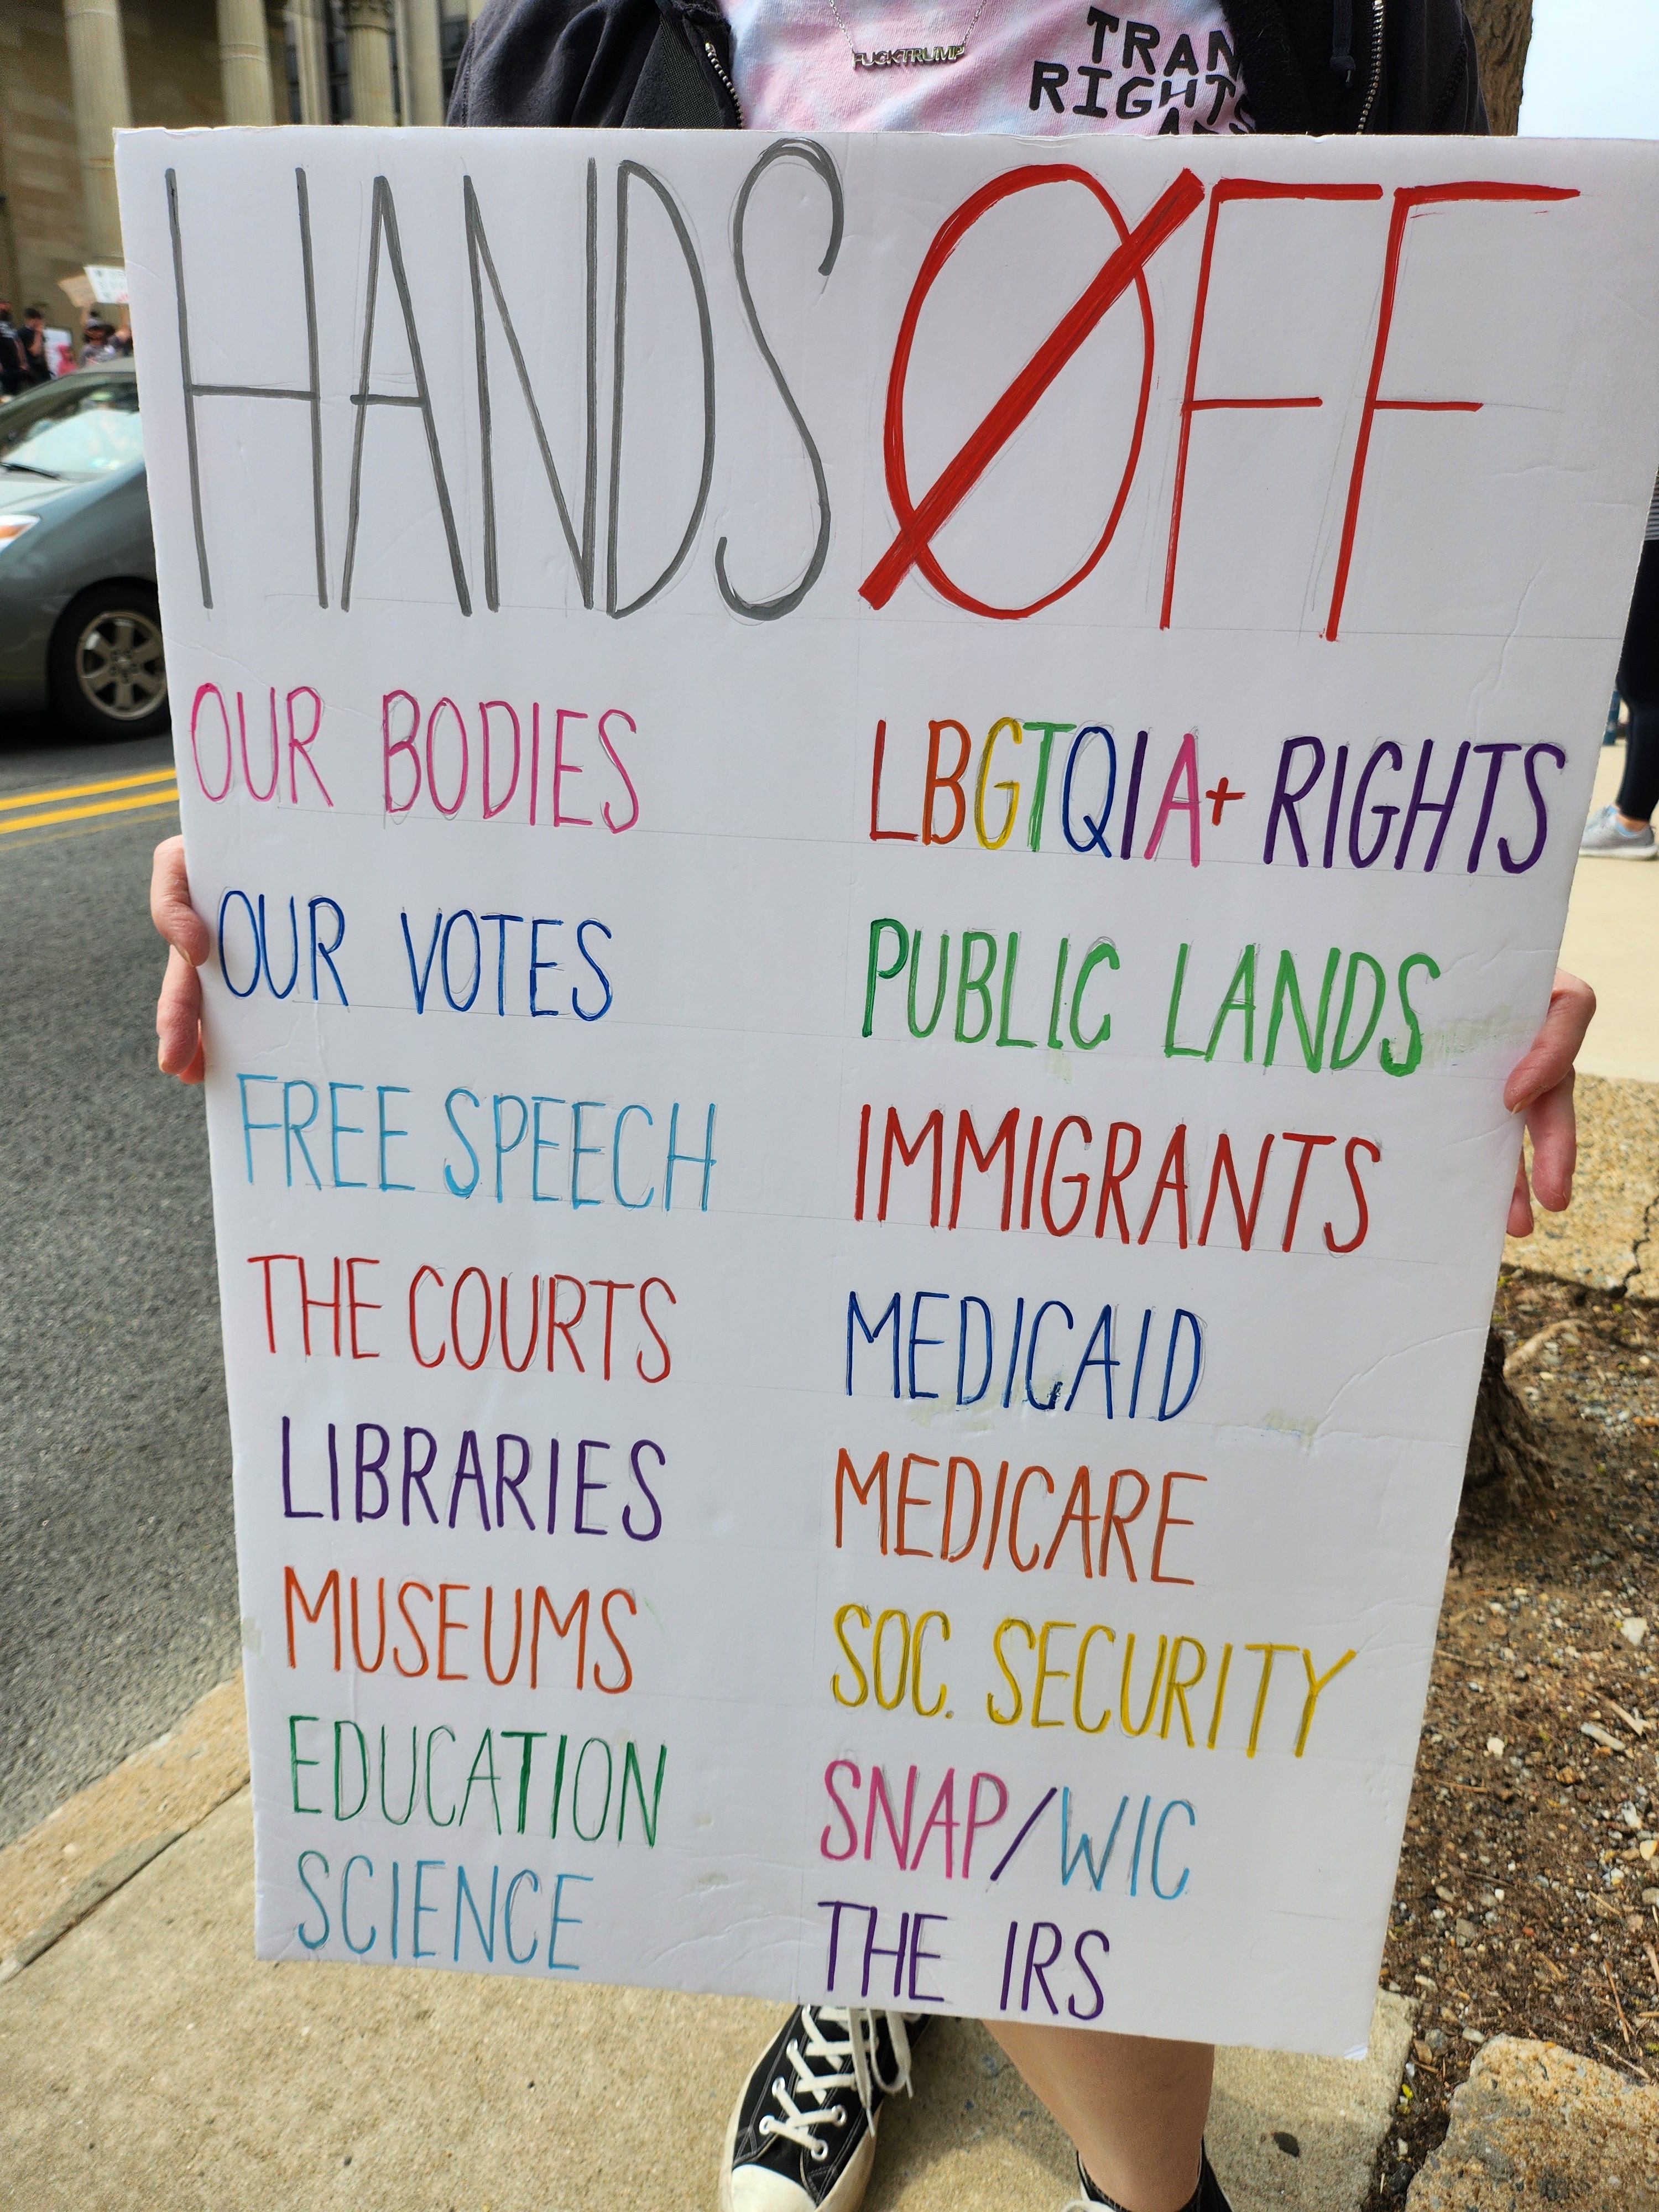 FUCKTRUMP
TRAN
RIGHTS
HANDS OFF
OUR BODIES
OUR VOTES
FREE SPEECH
THE COURTS
LIBRARIES
MUSEUMS
EDUCATION
SCIENCE
LBGTQIA+ RIGHTS
PUBLIC LANDS
IMMIGRANTS
MEDICAID
MEDICARE
SOC. SECURITY
SNAP/WIC
THE IRS